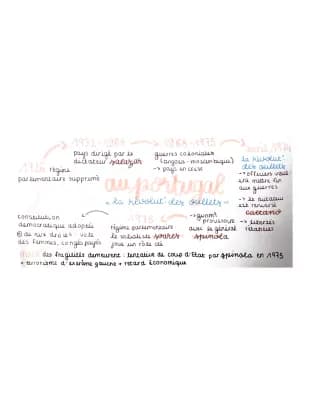 1932-1968
pays dirigé par le
dictateur salazar
guerres coloniales
(angola - mozambique)
→ pays en crise
avril 1974
la révolut° des œillets
→ officiers veulent
mettre fin
aux guerres
→ le dictateur
est renversé
caetano
→ libertés
rétablies
1926 régime
parlementaire supprimé
au portugal
« la révolut° des œillets »
constitution
démocratique adoptée
droits : vote
des femmes, congés payés
1976
régime parlementaire
le socialiste soares
joue un rôle clé
→ gouvt
provisoire
avec le général
spinola
des fragilités demeurent : tentative de coup d'Etat par spinola en 1975
+ terrorisme d'extrême gauche + retard économique